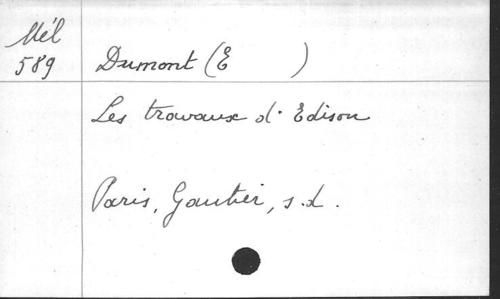 Mél
589
Dumont (E )
Les travaux d'Edison
Paris, Gautier, s.d.